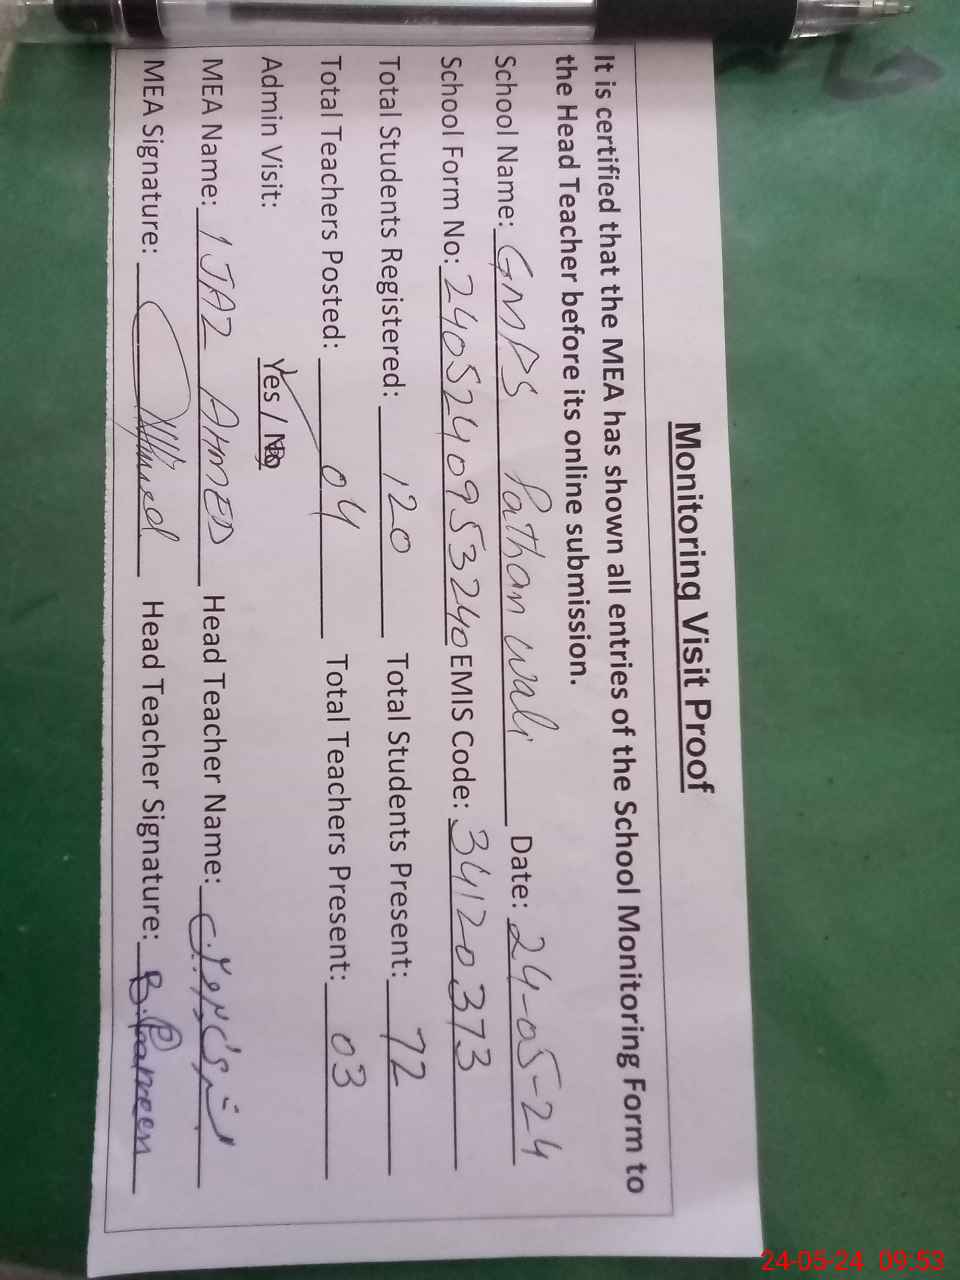 Monitoring Visit Proof
It is certified that the MEA has shown all entries of the School Monitoring Form to
the Head Teacher before its online submission.
School Name: GMPS Pathan wali Date: 24-05-24
School Form No: 2405240953240 EMIS Code: 34120373
Total Students Registered: 120 Total Students Present: 72
Total Teachers Posted: 04 Total Teachers Present: 03
Admin Visit: Yes / No
MEA Name: IJAZ AHMED Head Teacher Name:
MEA Signature: Head Teacher Signature: B. Parveen
24-05-24 09:53